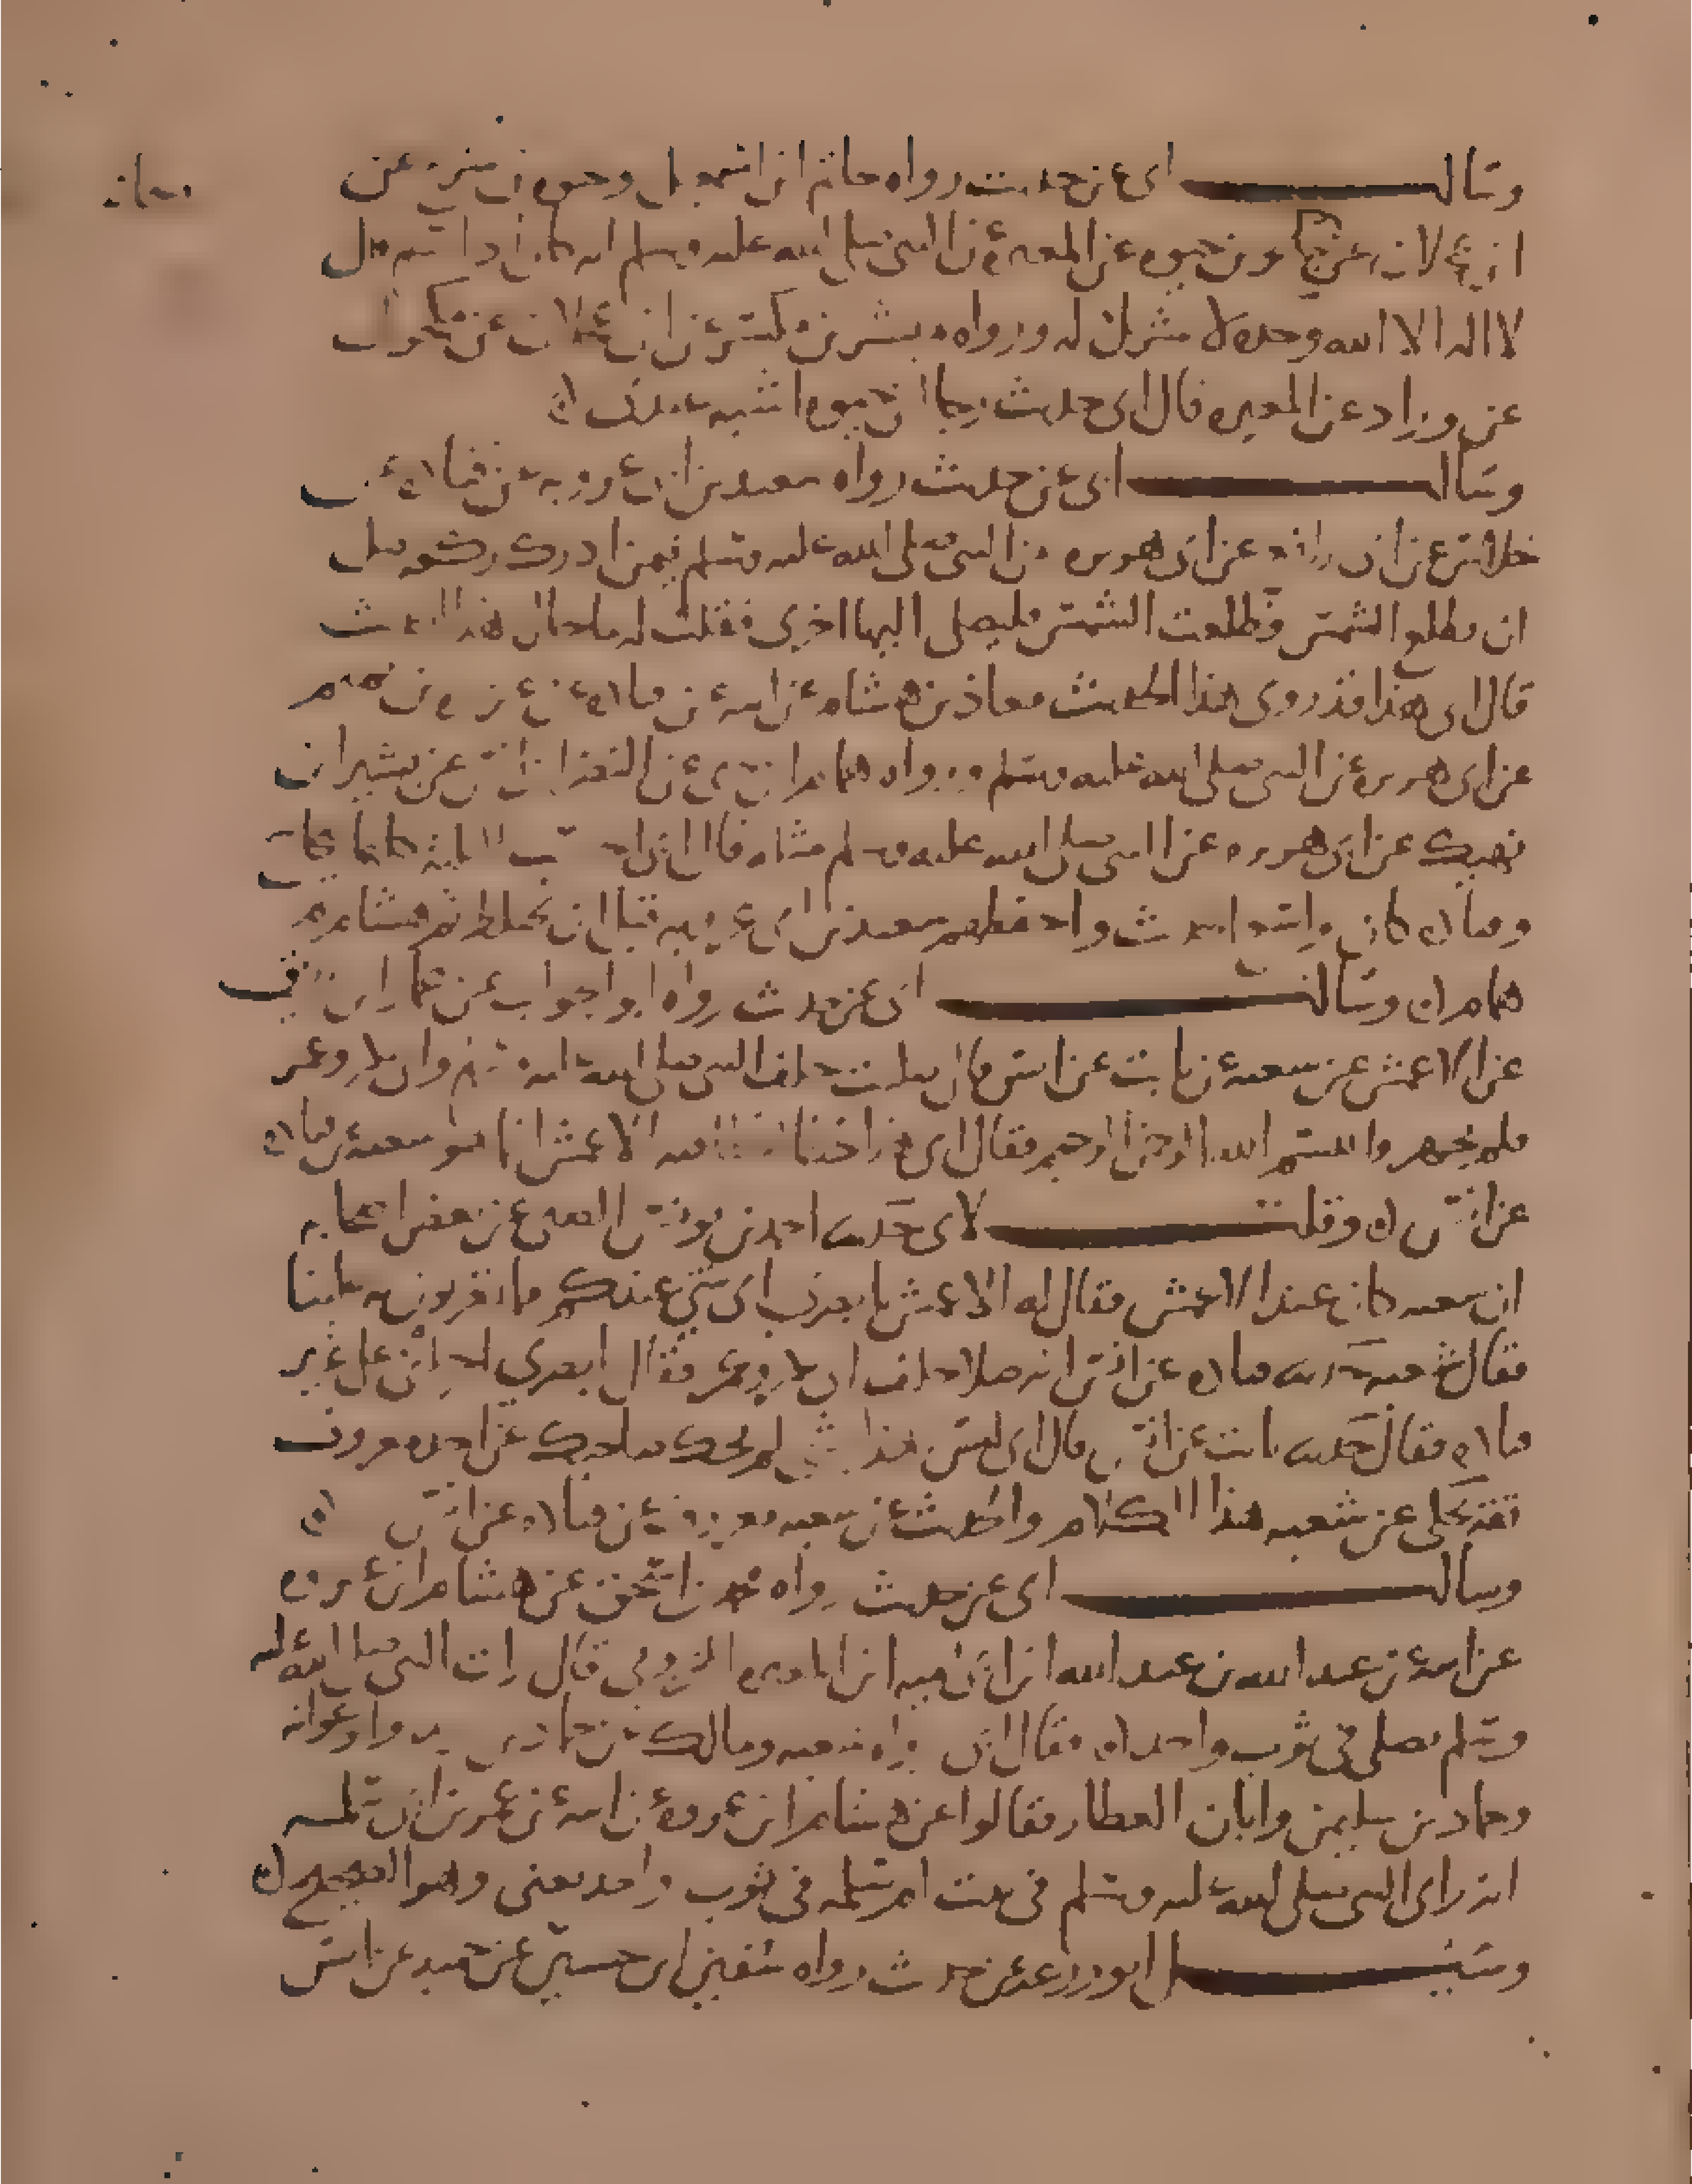 وسالت ابى عن حديث رواه حاتم ابن اسمعيل وحيوه بن شريح عن
ابن عجلان عن رجا بن حيوه عن المغيره عن النبى صلى الله عليه وسلم انه كان اذا سلم قال
لا اله الا الله وحده لا شريك له ورواه بشر بن عن ابن عجلان عن مكحول
عن وراد عن المغيره قال ابى حديث رجا ابن حيوه اشبه
وسالت ابى عن حديث رواه سعيد بن ابى عروبه عن قتاده عن
خلاس عن ابى رافع عن ابى هريره عن النبى صلى الله عليه وسلم فيمن ادرك ركعه قبل
ان تطلع الشمس وطلعت الشمس فليصلى اليها اخرى فقلت له ما حال هذا الحديث
قال ابى هذا قد روى هذا الحديث معاذ بن هشام عن ابيه عن قتاده عن عزره بن تميم
عن ابى هريره عن النبى صلى الله عليه وسلم ورواه همام ابن يحيى عن النضر ابن انس عن بشير ابن
نهيك عن ابى هريره عن النبى صلى الله عليه وسلم مثله قال ابى احسب الثلثه كلها صحاح
وقتاده كان واسع الحديث واحفظهم سعيد بن ابى عروبه قبل ان يختلط ثم هشام ثم
همام وسالت ابى عن حديث رواه ابو الجواب عن عمار ابن رزيق
عن الاعمش عن شعبه عن ثابت عن انس قال صليت خلف النبى صلى الله عليه وسلم وابى بكر وعمر
فلم يجهروا ببسم الله الرحمن الرحيم فقال ابى هذا خطا اخطا فيه الاعمش انما هو شعبه عن قتاده
عن انس وقلت لابى حديث احمد بن يونس عن بعض اصحابه
ان شعبه كان عند الاعمش فقال له الاعمش يا بصرى اى شى عندكم مما تغربون به علينا
فقال شعبه حدثنا قتاده عن انس انه صلا خلف ابى بكر وعمر فقال ابصرى على غير
قتاده فقال حدثنا ثابت عن انس قال ابى ليس هذا بشى لم يحك صاحبك عن احد معروف
فقد يحكى عن شعبه هذا الكلام والحديث عن شعبه معروف عن قتاده عن انس
وسالت ابى عن حديث رواه محمد بن اسحق عن هشام ابن عروه
عن ابيه عن عبد الله بن عبد الله ابن ابى اميه ابن المغيره المخزومى قال رايت النبى صلى الله عليه
وسلم يصلى فى ثوب واحد فقال ابى رواه شعبه ومالك وابو عوانه
وحماد بن سليمن وابان العطار فقالوا عن هشام ابن عروه عن ابيه عن عمر بن ابى سلمه
انه راى النبى صلى الله عليه وسلم فى بيت ام سلمه فى ثوب واحد يعنى وهو الصحيح
وسئل ابو زرعه عن حديث رواه سفين ابن حسين عن حميد عن انس